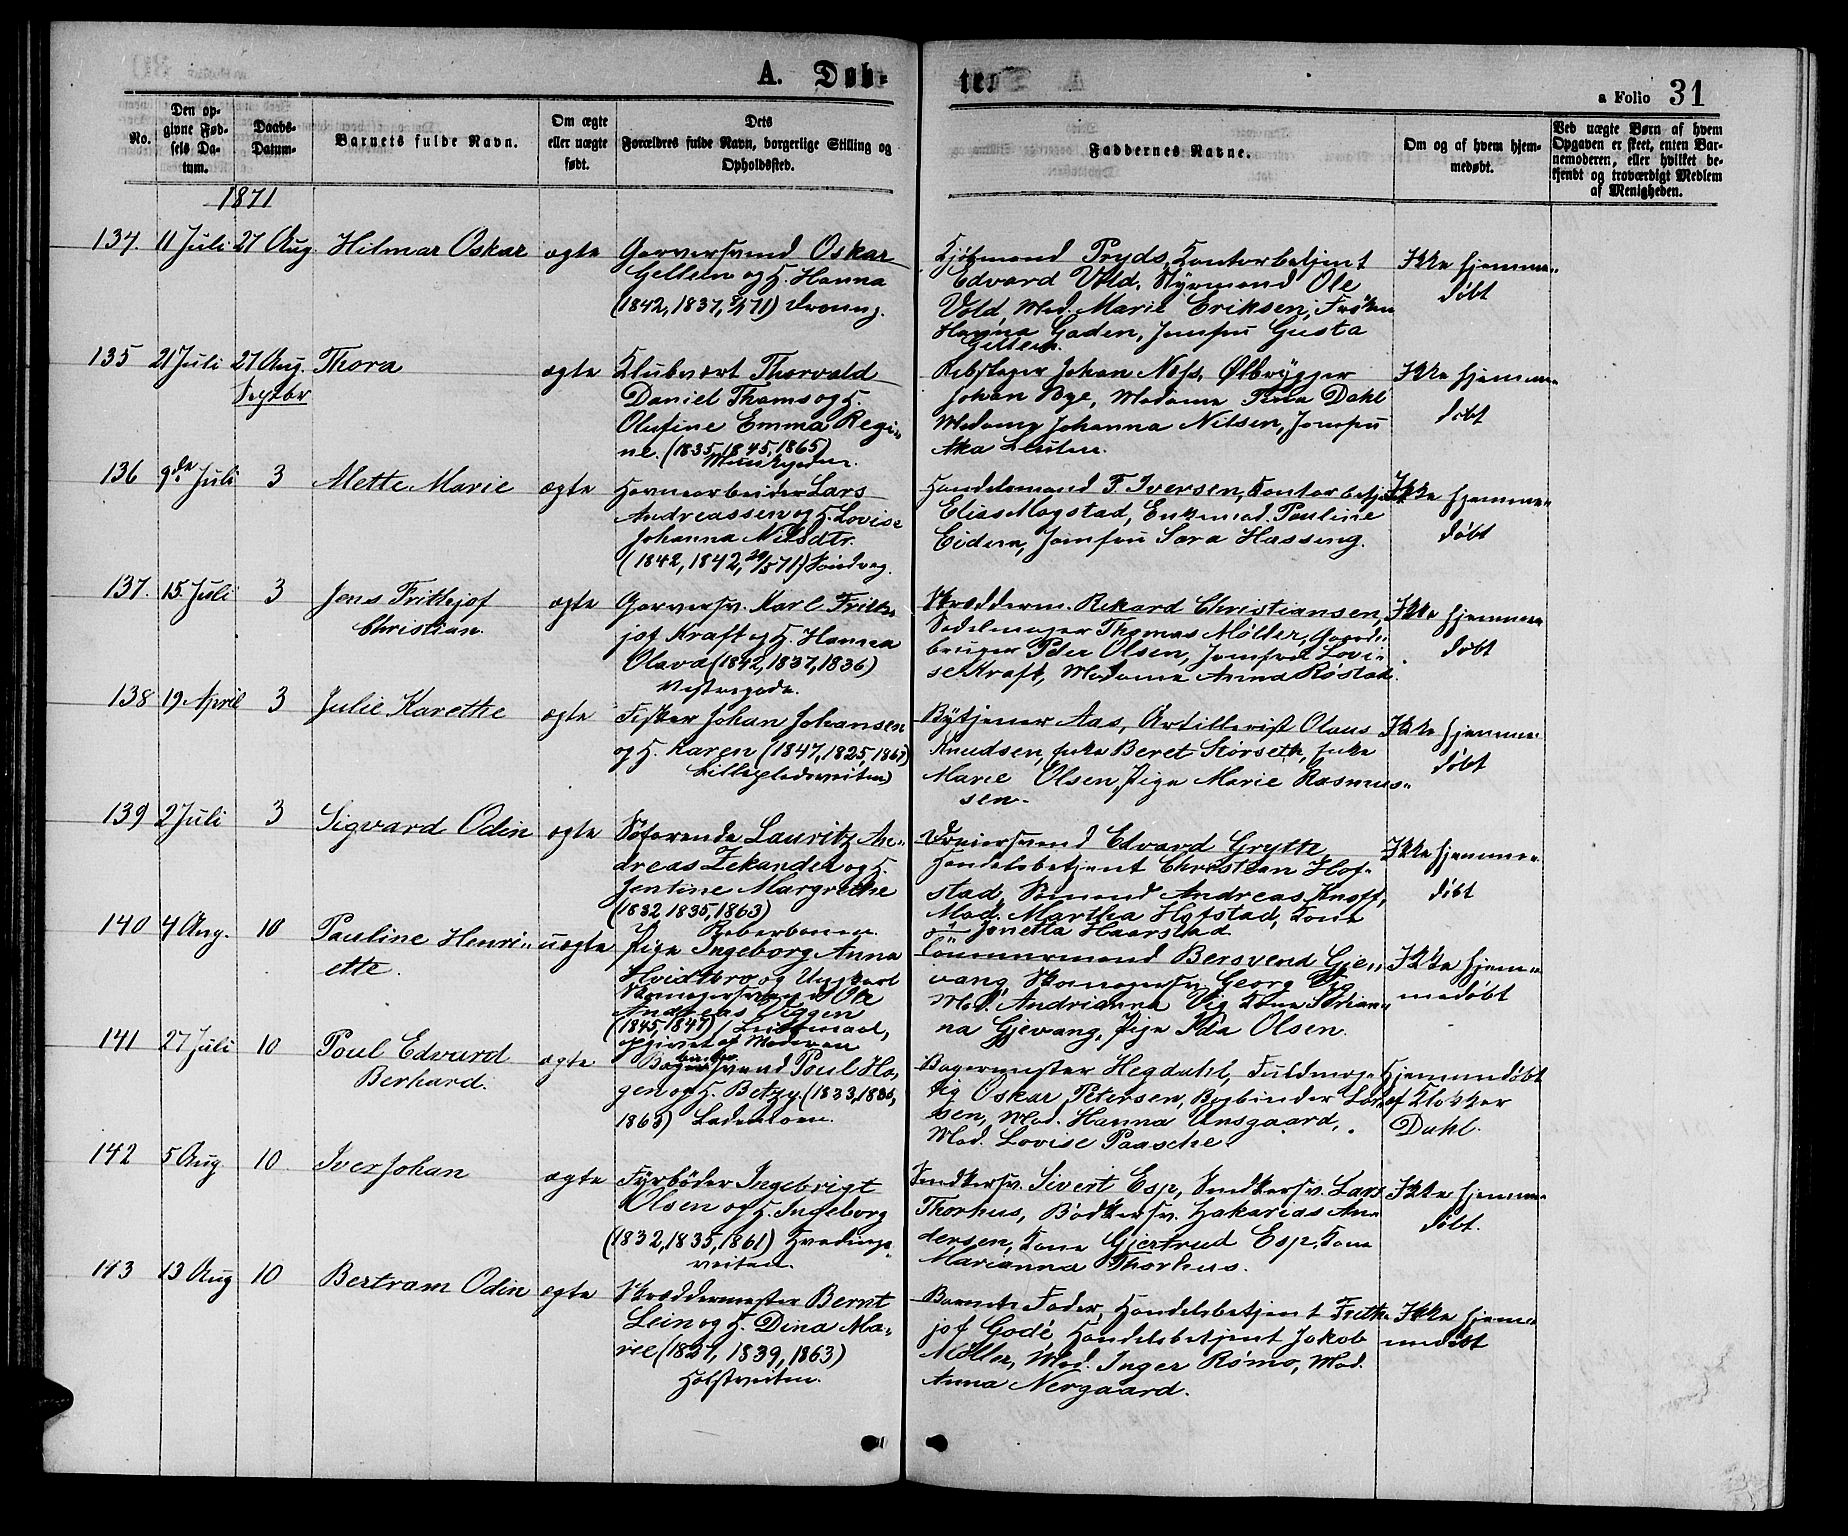 A. Døb-
tes
a Folio 31
No.
Den op-
givne Fød-
sels Da-
tum.
Daabs-
Datum.
Barnets fulde Navn.
Om ægte
eller uægte
født.
Dets
Forældres fulde Navn, borgerlige Stilling og
Opholdssted.
Faddernes Navne.
Om og af hvem hjem-
medøbt.
Ved uægte Børn af hvem
Opgaven er skeet, enten Bar-
nemoderen, eller hvilket be-
kjendt og troværdigt Medlem
af Menigheden.
1871
134. 11 Juli 27 Aug. Hilmar Oskar ægte
Garversvend Oskar
Gellein og H. Hanna
(1842, 1837, 71)
Kjøbmand Pryds, Kontorbetjent
Edvard Vold, Styrmand Ole
Vold, Mad. Marie Eriksen, Frøken
Hanna Gaden, Jomfru Gusta
Gellein.
Ikke hjemme-
døbt
135 21 Juli 27 Aug. Thora ægte
Klubvært Thorvald
Daniel Thams og H.
Olufine Emma Regi-
ne. (1835, 1845, 1865)
Rebslager Johan Næss, Ølbrygger
Johan Bye, Madame Tina Dahl
Madame Johanna Nilsen, Jomfru
Ikke hjemme
døbt
Septbr
136 9de Juli 3 Mette Marie ægte
Havnearbeider Lars
Andreassen og H. Lovise
Johanna Nilsdtr.
(1842, 1842, 20/5 71)
Handelsmand F. Iversen, Kontorbetjent
Elias Magstad, Enkemad. Pauline
Eidem, Jomfru Sara Hassing.
Ikke hjemme-
døbt
137. 15. Juli 3 Jens Frithjof
Christian. ægte
Garversv. Karl Frith-
jof Kraft og H. Hanna
Olava (1842, 1837, 1836)
Skrædderm. Rikard Christiansen,
Sadelmager Thomas Møller, Gaard-
bruger Peter Olsen, Jomfru Lovi-
se Kraft, Madame Anna Røstad.
Ikke hjemme
døbt
138 19. April 3 Julie Karethe ægte
Fisker Johan Johansen
og H. Karen (1847, 1825, 1863)
Bytjener Aas, Artillerist Olaus
Knudsen, Enke Beret Størseth, Enke
Marie Olsen, Pige Marie Rasmus-
sen.
Ikke hjemme-
døbt
139 2 Juli 3 Sigvard Odin ægte
Søfarende Lauritz An-
dreas Zekandel og H.
Jentine Margrethe
(1832, 1835, 1863)
Dreiersvend Edvard Grytte,
Handelsbetjent Christian Hof-
stad, Sømand Andreas Knoff,
Mad. Martha Hofstad, Kone
Jonetta Haarstad.
Ikke hjemme-
døbt
140 4 Aug. 10 Pauline Henri-
ette. uægte
Pige Ingeborg Anna
Hvidsbro og Ungkarl
Skomagersvend Ole
Andreas Viggen
(1845, 1847)
opgivet af Moderen
Tømmermand Bersvend Gje-
vang, Skomagersv. Georg Vig
Mad. Andrianna Vig, Kone Johan-
na Gjevang, Pige Ida Olsen.
Ikke hjem-
medøbt
141 27 Juli 10 Poul Edvard
Berhard. ægte
Bogbindersvend Poul Ha-
gen og H. Betzy. (1833, 1835,
1863) Lademoen.
Bagermester Hegdahl, Fuldmæg-
tig Oskar Petersen, Bogbinder Lar-
sen, Mad. Hanna Unsgaard,
Mad. Lovise Paasche.
Hjemmedøbt
af Klokker
Dahl.
142 5 Aug. 10 Iver Johan ægte
Fyrbøder Ingebrigt
Olsen og H. Ingeborg
(1832, 1835, 1861) Hvedings-
veiten.
Snedkersv. Sivert Esp, Snedkersv. Lars
Thorhus, Bødkersv. Zakarias An-
dersen, Kone Gjertrud Esp, Kone
Marianna Thorhus.
Ikke hjemme-
døbt.
143 13 Aug 10 Bertram Odin ægte
Skræddermester Bernt
Lein og H. Dina Ma-
rie (1827, 1839, 1863)
Holstveiten.
Barnets Fader, Handelsbetjent Frith-
jof Godé, Handelsbetjent Jakob
Møller, Mad. Inger Rømo, Mad.
Anna Nergaard.
Ikke hjem-
medøbt